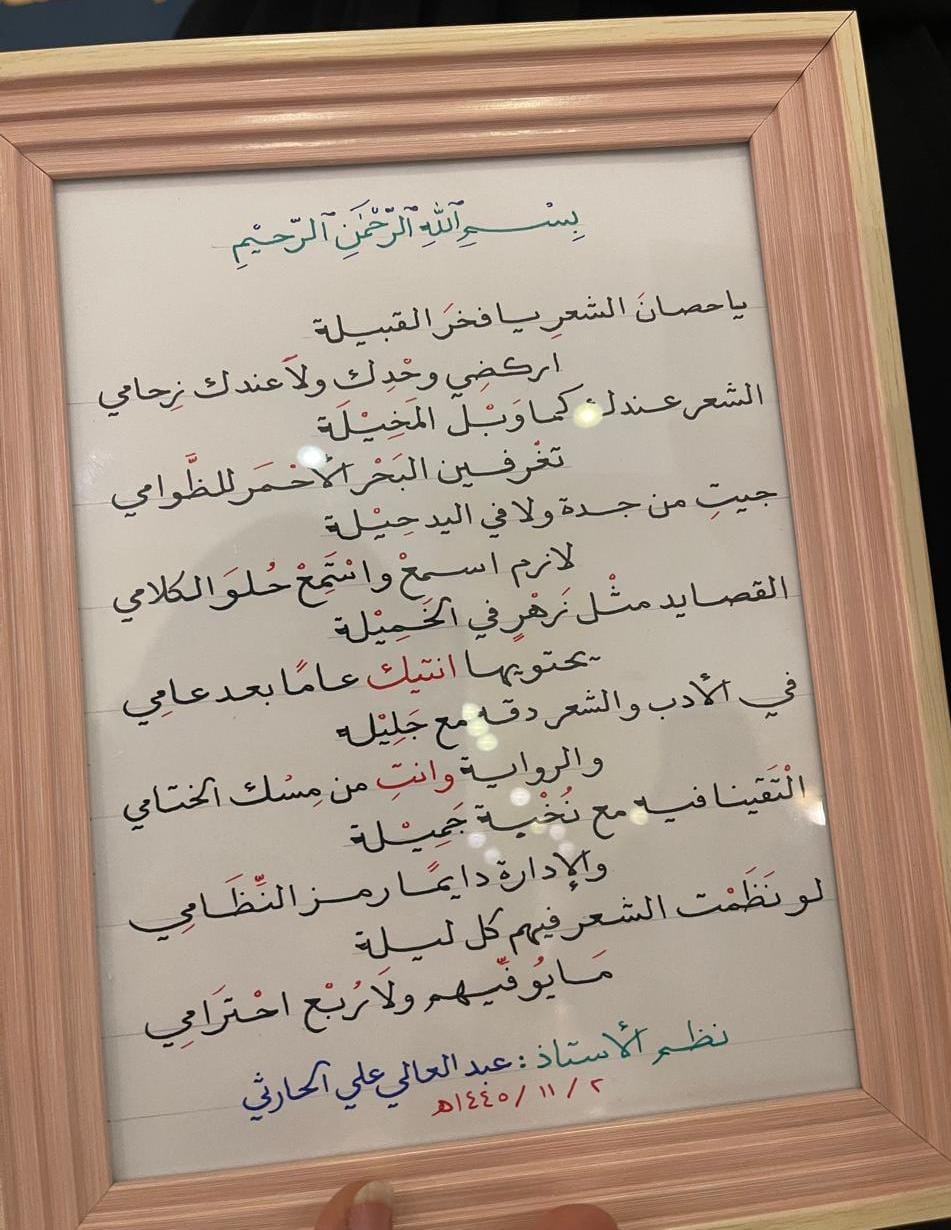 بِسْــمِ ٱللَّهِ ٱلرَّحْمَٰنِ ٱلرَّحِيْمِ
ياحصانَ الشعرِ يا فخرَ القبيلة
اركضِي وحْدِك ولاَ عندك زِحامي
الشعر عندك كما وَبْل المَخِيْلَة
تغْرفين البَحْر الأحْمَر للظَّوامي
جيتِ من جدة ولا في اليد حِيْلة
لازم اسمعْ واسْتَمِعْ حُلوَ الكلامي
القصايد مثْل زَهْرٍ في الخَمِيْلة
يحتويها انتيك عامًا بعد عامِي
في الأدب والشعر دقه مع جَلِيْله
والرواية وانتِ من مِسْك الختامي
الْتَقَينا فيه مع نُخْبة جَمِيْلة
والإدارة دايمًا رمز النِّظَامِي
لو نَظَمْت الشعر فيهم كل ليلة
مَا يُوفِّيهم ولَا رُبْع احْتَرَامِي
نظم الأستاذ : عبد العالي علي الحارثي
٢ / ١١ / ١٤٤٥هـ